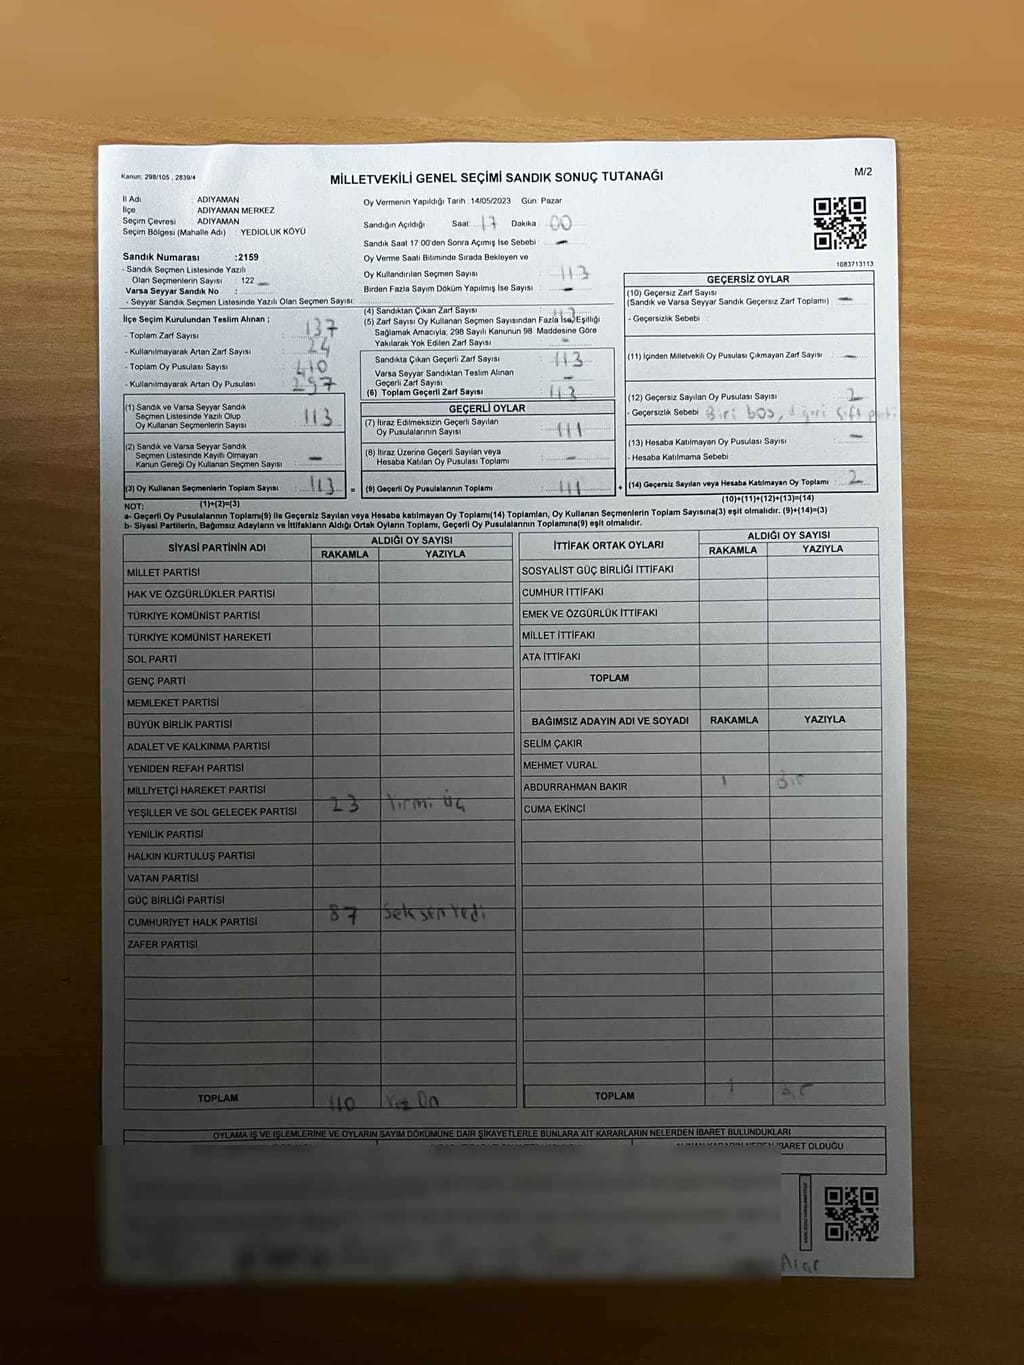 Kanun: 298/105 , 2839/4
MİLLETVEKİLİ GENEL SEÇİMİ SANDIK SONUÇ TUTANAĞI
M/2
İl Adı ADIYAMAN
İlçe ADIYAMAN MERKEZ
Seçim Çevresi ADIYAMAN
Seçim Bölgesi (Mahalle Adı) : YEDIOLUK KÖYÜ
Oy Vermenin Yapıldığı Tarih :14/05/2023 Gün: Pazar
Sandığın Açıldığı Saat: 17 Dakika : 00
Sandık Saat 17:00'den Sonra Açımış İse Sebebi : —
Oy Verme Saati Bitiminde Sırada Bekleyen ve
Oy Kullandırılan Seçmen Sayısı : 113
Birden Fazla Sayım Döküm Yapılmış İse Sayısı : —
1083713113
Sandık Numarası :2159
- Sandık Seçmen Listesinde Yazılı
Olan Seçmenlerin Sayısı : 122
Varsa Seyyar Sandık No :
- Seyyar Sandık Seçmen Listesinde Yazılı Olan Seçmen Sayısı:
İlçe Seçim Kurulundan Teslim Alınan ;
- Toplam Zarf Sayısı : 137
- Kullanılmayarak Artan Zarf Sayısı : 24
- Toplam Oy Pusulası Sayısı : 410
- Kullanılmayarak Artan Oy Pusulası : 297
(1) Sandık ve Varsa Seyyar Sandık
Seçmen Listesinde Yazılı Olup
Oy Kullanan Seçmenlerin Sayısı : 113
(2) Sandık ve Varsa Seyyar Sandık
Seçmen Listesinde Kayıtlı Olmayan
Kanun Gereği Oy Kullanan Seçmen Sayısı : —
(3) Oy Kullanan Seçmenlerin Toplam Sayısı : 113
(4) Sandıktan Çıkan Zarf Sayısı : 113
(5) Zarf Sayısı Oy Kullanan Seçmen Sayısından Fazla İse, Eşitliği
Sağlamak Amacıyla, 298 Sayılı Kanunun 98. Maddesine Göre
Yakılarak Yok Edilen Zarf Sayısı : —
Sandıkta Çıkan Geçerli Zarf Sayısı : 113
Varsa Seyyar Sandıktan Teslim Alınan
Geçerli Zarf Sayısı : —
(6) Toplam Geçerli Zarf Sayısı : 113
GEÇERLİ OYLAR
(7) İtiraz Edilmeksizin Geçerli Sayılan
Oy Pusulalarının Sayısı : 111
(8) İtiraz Üzerine Geçerli Sayılan veya
Hesaba Katılan Oy Pusulası Toplamı : —
= (9) Geçerli Oy Pusulalarının Toplamı : 111
GEÇERSİZ OYLAR
(10) Geçersiz Zarf Sayısı
(Sandık ve Varsa Seyyar Sandık Geçersiz Zarf Toplamı) : —
- Geçersizlik Sebebi :
(11) İçinden Milletvekili Oy Pusulası Çıkmayan Zarf Sayısı : —
(12) Geçersiz Sayılan Oy Pusulası Sayısı : 2
- Geçersizlik Sebebi : Biri boş, diğeri çift parti
(13) Hesaba Katılmayan Oy Pusulası Sayısı : —
- Hesaba Katılmama Sebebi :
+ (14) Geçersiz Sayılan veya Hesaba Katılmayan Oy Toplamı : 2
(1)+(2)=(3)
(10)+(11)+(12)+(13)=(14)
NOT:
a- Geçerli Oy Pusulalarının Toplamı(9) ile Geçersiz Sayılan veya Hesaba Katılmayan Oy Toplamı(14) Toplamları, Oy Kullanan Seçmenlerin Toplam Sayısına(3) eşit olmalıdır. (9)+(14)=(3)
b- Siyasi Partilerin, Bağımsız Adayların ve İttifakların Aldığı Ortak Oyların Toplamı, Geçerli Oy Pusulalarının Toplamına(9) eşit olmalıdır.
SİYASİ PARTİNİN ADI
ALDIĞI OY SAYISI
RAKAMLA YAZIYLA
MİLLET PARTİSİ
HAK VE ÖZGÜRLÜKLER PARTİSİ
TÜRKİYE KOMÜNİST PARTİSİ
TÜRKİYE KOMÜNİST HAREKETİ
SOL PARTİ
GENÇ PARTİ
MEMLEKET PARTİSİ
BÜYÜK BİRLİK PARTİSİ
ADALET VE KALKINMA PARTİSİ
YENİDEN REFAH PARTİSİ
MİLLİYETÇİ HAREKET PARTİSİ
YEŞİLLER VE SOL GELECEK PARTİSİ 23 Yirmi Üç
YENİLİK PARTİSİ
HALKIN KURTULUŞ PARTİSİ
VATAN PARTİSİ
GÜÇ BİRLİĞİ PARTİSİ
CUMHURİYET HALK PARTİSİ 87 Seksen Yedi
ZAFER PARTİSİ
TOPLAM 110 Yüz On
İTTİFAK ORTAK OYLARI
ALDIĞI OY SAYISI
RAKAMLA YAZIYLA
SOSYALİST GÜÇ BİRLİĞİ İTTİFAKI
CUMHUR İTTİFAKI
EMEK VE ÖZGÜRLÜK İTTİFAKI
MİLLET İTTİFAKI
ATA İTTİFAKI
TOPLAM
BAĞIMSIZ ADAYIN ADI VE SOYADI RAKAMLA YAZIYLA
SELİM ÇAKIR
MEHMET VURAL
ABDURRAHMAN BAKIR 1 Bir
CUMA EKİNCİ
TOPLAM 1 Bir
OYLAMA İŞ VE İŞLEMLERİNE VE OYLARIN SAYIM DÖKÜMÜNE DAİR ŞİKAYETLERLE BUNLARA AİT KARARLARIN NELERDEN İBARET BULUNDUKLARI
ALINAN KARARIN NEDEN İBARET OLDUĞU